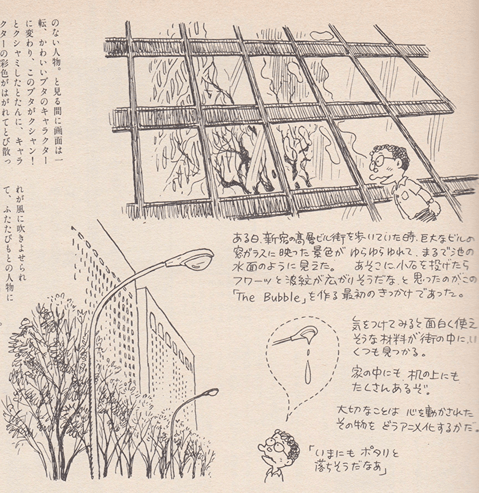 のない人物。と見る間に画面は一
転、かわいいブタのキャラクター
に変わり、このブタがクシャン!
とクシャミしたとたんに、キャラ
クターの彩色がはがれてとび散っ
れが風に吹きよせられ
て、ふたたびもとの人物に
ある日、新宿の高層ビル街を歩いていた時、巨大なビルの
窓ガラスに映った景色が ゆらゆらゆれて、まるで池の
水面のように見えた。 あそこに小石を投げたら
フワーッと波紋が広がりそうだな、と思ったのがこの
「The Bubble」を作る最初のきっかけであった。
気をつけてみると面白く使え
そうな材料が街の中に、い
くつも見つかる。
家の中にも 机の上にも
たくさんあるぞ。
大切なことは 心を動かされた
その物を どうアニメ化するかだ。
「いまにも ポタリと
落ちそうだなあ」